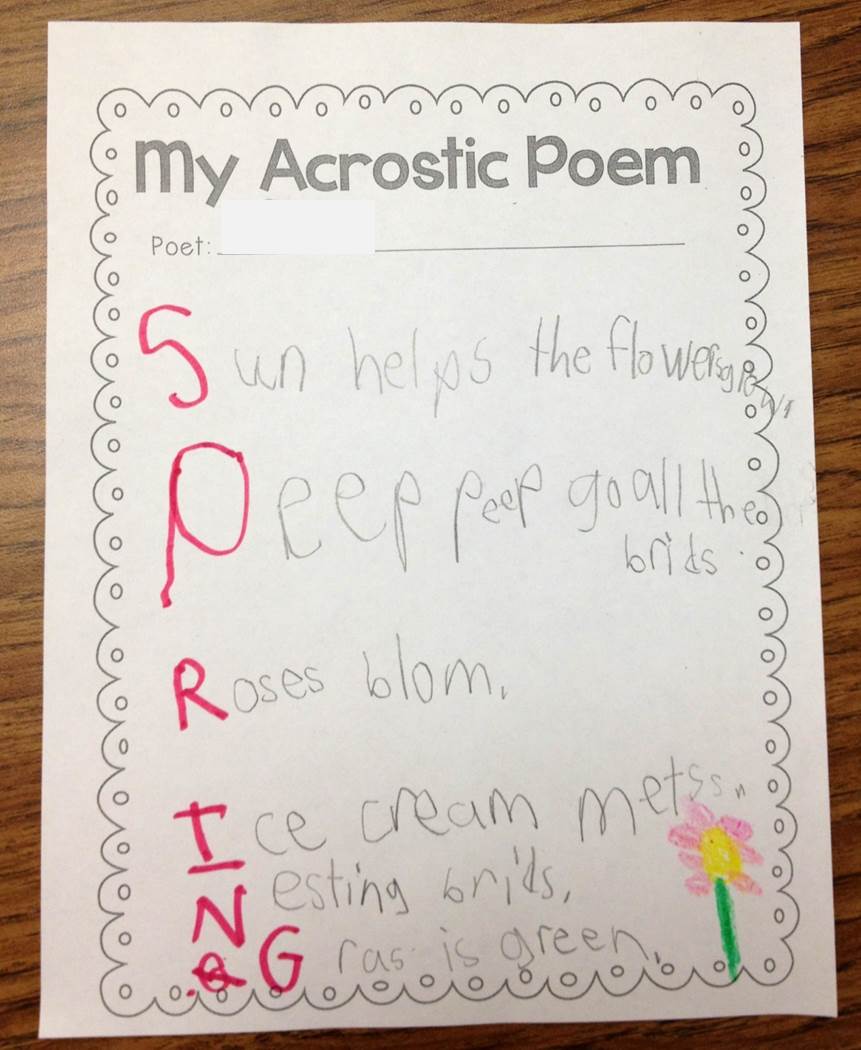 My Acrostic Poem
Poet:
Sun helps the flowers grow.
Peep peep go all the
brids.
Roses blom.
Ice cream metss.
Nesting brids.
Gras is green.